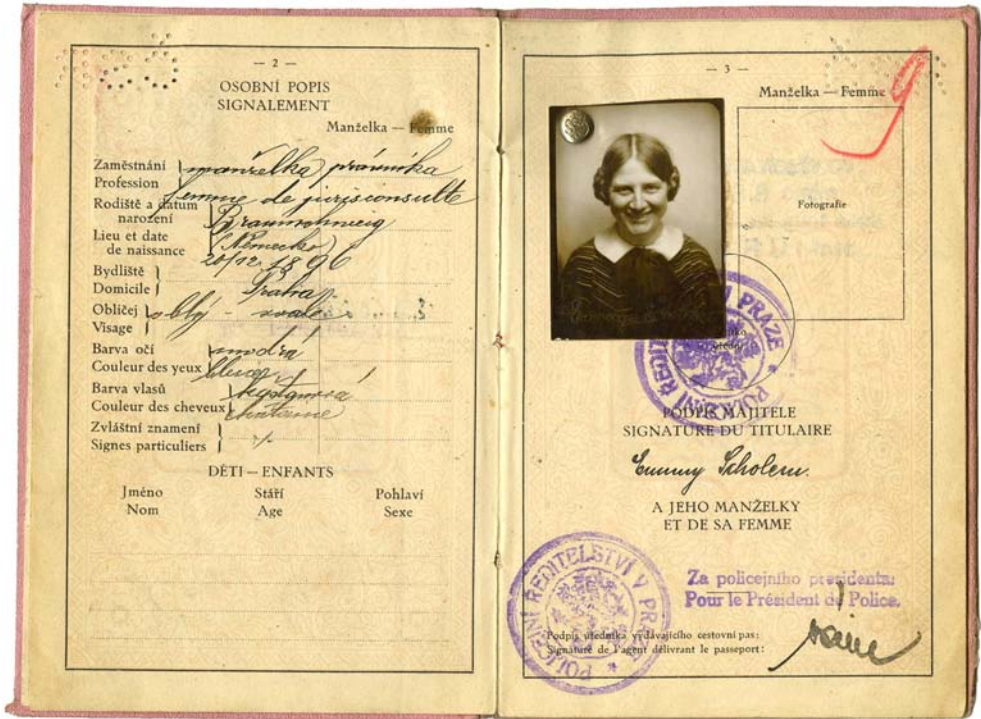 — 2 —
OSOBNÍ POPIS
SIGNALEMENT
Manželka — Femme
Zaměstnání
Profession
manželka právníka
femme de jurisconsulte
Rodiště a datum
narození
Lieu et date
de naissance
Braunschweig
(Německo)
20/12 1896
Bydliště
Domicile
Praha
Obličej
Visage
oblý - ovale
Barva očí
Couleur des yeux
modrá
bleue
Barva vlasů
Couleur des cheveux
Zvláštní znamení
Signes particuliers
DĚTI — ENFANTS
Jméno Stáří Pohlaví
Nom Age Sexe
— 3 —
Manželka — Femme
Fotografie
POLICEJNÍ ŘEDITELSTVÍ V PRAZE
PODPIS MAJITELE
SIGNATURE DU TITULAIRE
Emmy Scholem.
A JEHO MANŽELKY
ET DE SA FEMME
POLICEJNÍ ŘEDITELSTVÍ V PRAZE
Za policejního presidenta:
Pour le Président de Police.
Podpis úředníka vydávajícího cestovní pas:
Signature de l'agent délivrant le passeport: